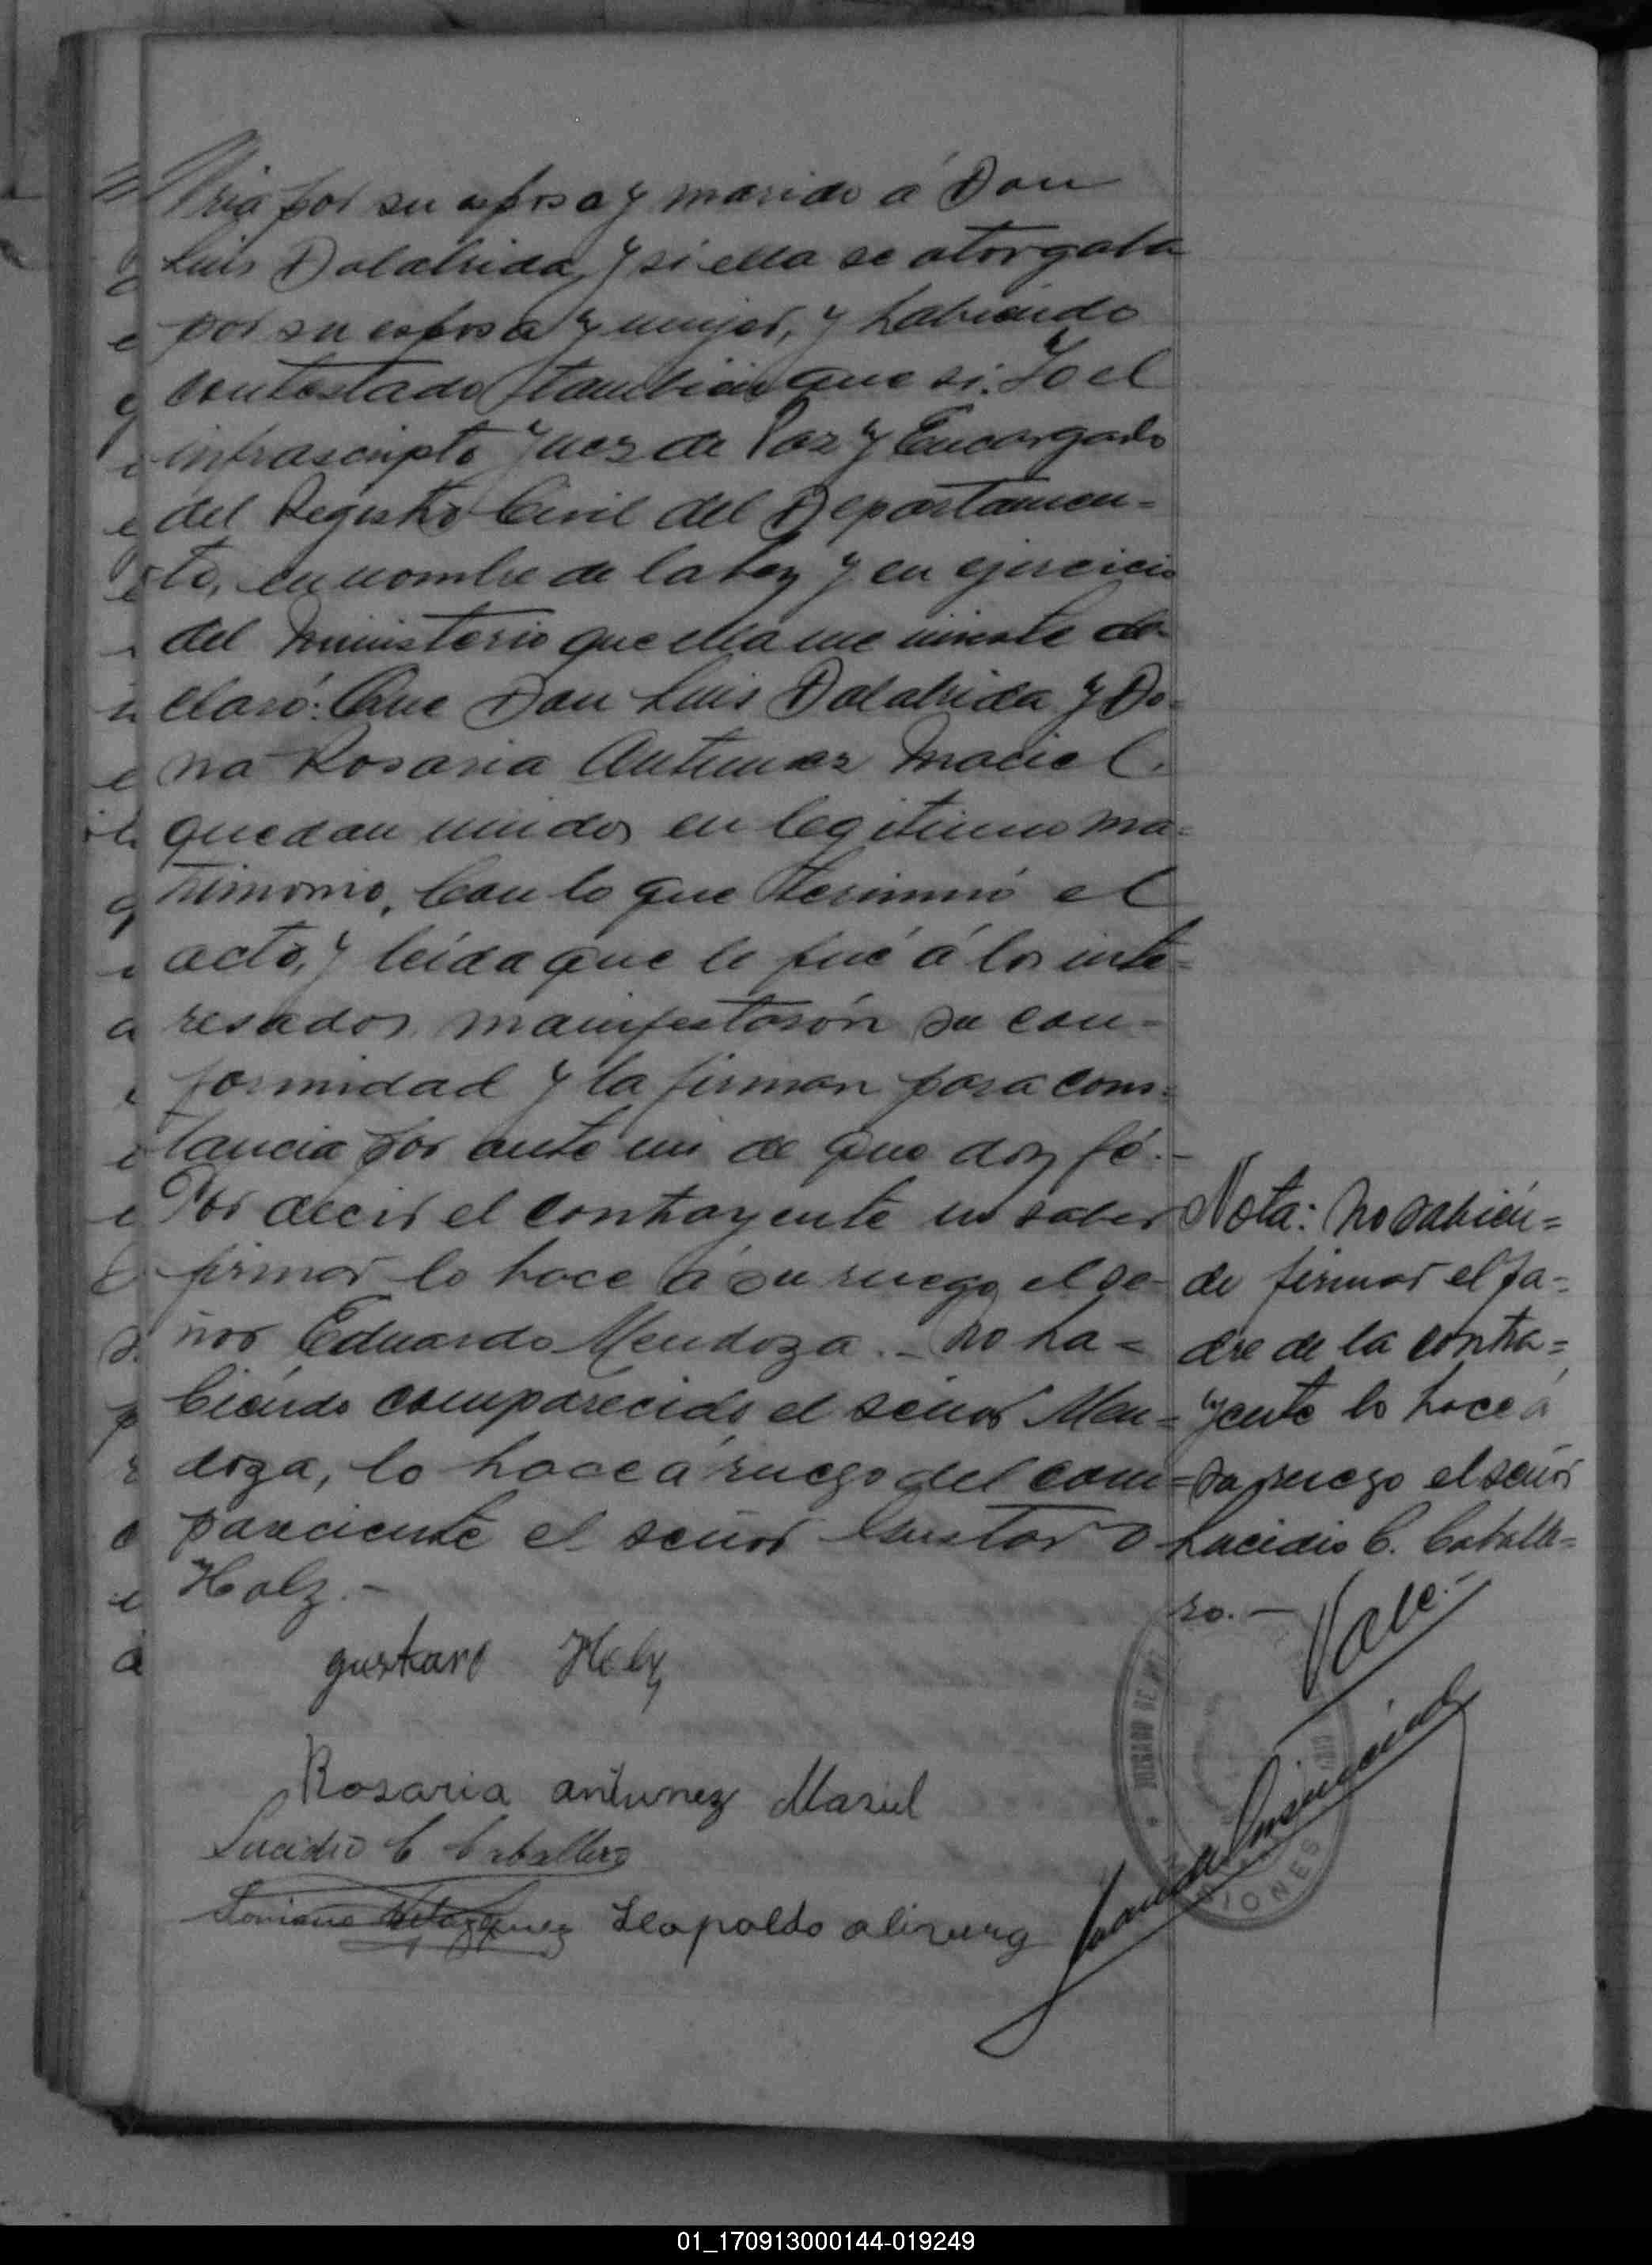 ria por su esposo y marido á Don
Luis Dalalrida, y si ella se otorgaba
por su esposa y mujer, y habiendo
contestado tambien que si. Yo el
infrascripto Juez de Paz y Encargado
del Registro Civil del Departamen=
to, en nombre de la ley y en ejercicio
del Ministerio que ella me inviste de-
claro: Que Don Luis Dalalrida y Do=
ña Rosaria Antunez Maciel.
quedan unidos en legitimo ma=
trimonio. Con lo que terminó el
acto, y leida que le fué á los inte=
resados manifestarón su con=
formidad y la firman para cons=
tancia por ante mi de que doy fé.-
Por decir el contrayente no saber
firmar lo hace á su ruego el se-
ñor Eduardo Mendoza.- No ha=
biendo comparecido el señor Men=
doza, lo hace á ruego del com=
pareciente el señor Gustavo
Holz.-
Nota: No sabien=
do firmar el pa=
dre de la contra=
yente lo hace á
su ruego el señor
Lucidio C. Caballe=
ro.-
Vale.-
gustavo Holz
Rosaria antunez Masiel
Lucidio C Caballero
Leopoldo
JUZGADO DE